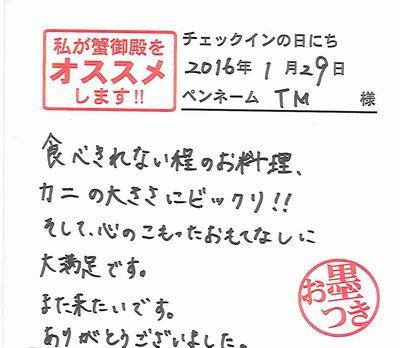 私が蟹御殿を
オススメ
します!!
チェックインの日にち
2016年 1月29日
ペンネーム TM 様
食べきれない程のお料理、
カニの大きさにビックリ!!
そして、心のこもったおもてなしに
大満足です。
また来たいです。
ありがとうございました。
お墨つき